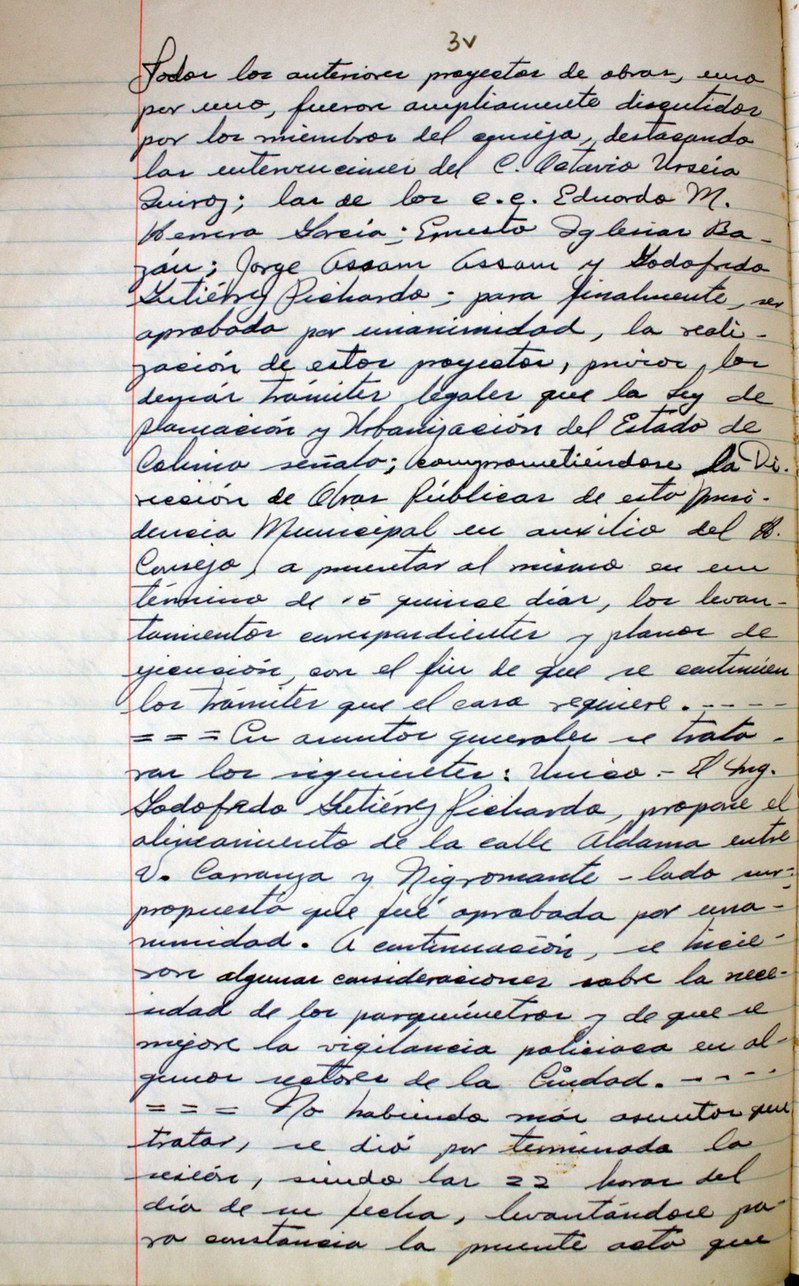 3v
Todos los anteriores proyectos de obras, uno
por uno, fueron ampliamente discutidos
por los miembros del consejo, destacando
las intervenciones del C. Octavio Urzúa
Quiroz; las de los c.c. Eduardo M.
Herrera García; Ernesto Iglesias Ba-
zán; Jorge Assam Assam y Godofredo
Gutiérrez Pichardo; para finalmente, ser
aprobada por unanimidad, la reali-
zación de estos proyectos, previos los
demás trámites legales que la Ley de
planeación y Urbanización del Estado de
Colima señala; comprometiéndose la Di-
rección de Obras Públicas de esta presi-
dencia Municipal en auxilio del H.
Consejo, a presentar al mismo en un
término de 15 quince días, los levan-
tamientos correspondientes y planos de
ejecución, con el fin de que se continúen
los trámites que el caso requiere. - - - -
= = = En asuntos generales se trata-
ron los siguientes: Unico.- El Ing.
Godofredo Gutiérrez Pichardo, propone el
alineamiento de la calle Aldama entre
V. Carranza y Nigromante - lado sur-;
propuesta que fué aprobada por una-
nimidad. A continuación, se hicie-
ron algunas consideraciones sobre la nece-
sidad de los parquímetros y de que se
mejore la vigilancia policiaca en al-
gunos sectores de la Ciudad. - - - -
= = = No habiendo más asuntos que
tratar, se dió por terminada la
sesión, siendo las 22 horas del
día de su fecha, levantándose pa-
ra constancia la presente acta que